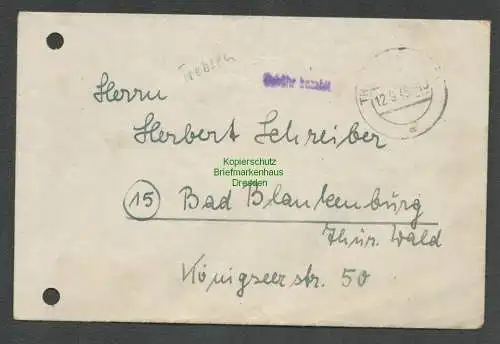 Trebsen
Gebühr bezahlt
12.9.45
Herrn
Herbert Schreiber
Kopierschutz
Briefmarkenhaus
Dresden
15 Bad Blankenburg
Thür. Wald
Königseerstr. 50